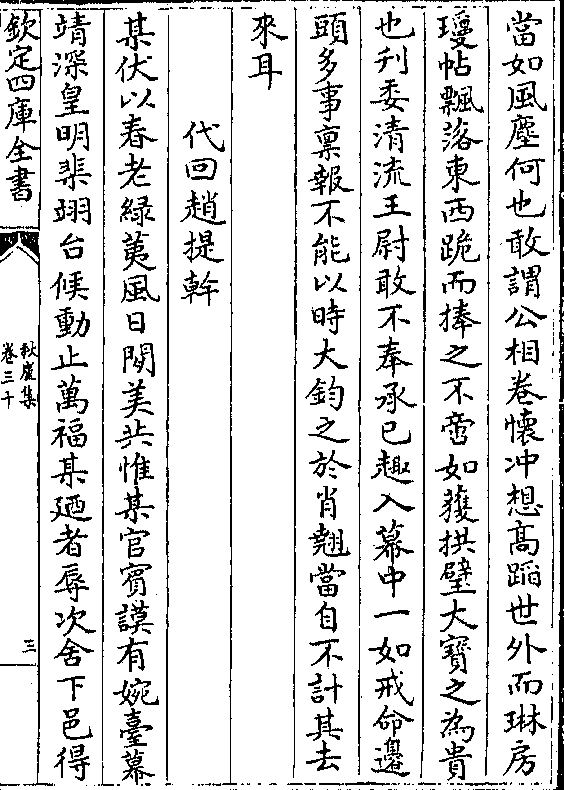 當如風塵何也敢謂公相卷懷冲想髙蹈世外而琳房
瓊帖飄落東西跪而捧之不啻如獲拱璧大寳之為貴
也刋委清流王尉敢不奉承已趣入幕中一如戒命邊
頭多事禀報不能以時大鈞之於肖翹當自不計其去
來耳
代回趙提幹
某伏以春老緑荑風日閑美共惟某官賓謨有婉臺幕
靖深皇明棐翊台候動止萬福某廼者辱次舍下邑得
欽定四庫全書
秋崖集
卷三十
三